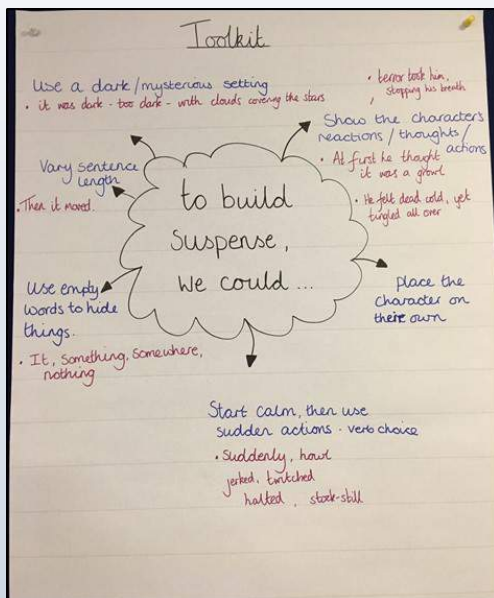 Toolkit
Use a dark/mysterious setting
• it was dark - too dark - with clouds covering the stars
• terror took him,
stopping his breath
Show the characters
reactions / thoughts /
actions
• At first he thought
it was a growl
• He felt dead cold, yet
tingled all over
Vary sentence
length
• Then it moved.
to build
suspense,
we could ...
Use empty
words to hide
things.
• It, something, somewhere,
nothing
place the
character on
their own
Start calm, then use
sudden actions - verb choice
• suddenly, howl
jerked, twitched
halted, stock-still